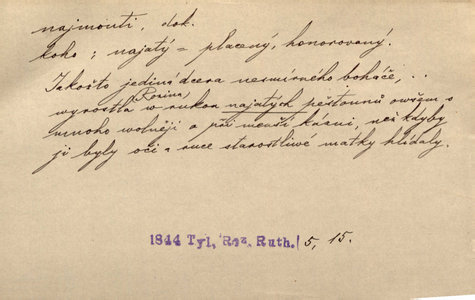 najmouti, dok.
koho; najatý = placený, honorovaný.
Jakožto jediná dcera nesmírného boháče, ..
Rosina
wyrostla w rukou najatých pěstounů owšem s
mnoho wolněji a při menší kázni, než kdyby
ji byly oči a ruce starostliwé matky hlídaly.
1844 Tyl, Roz. Ruth. 5, 15.